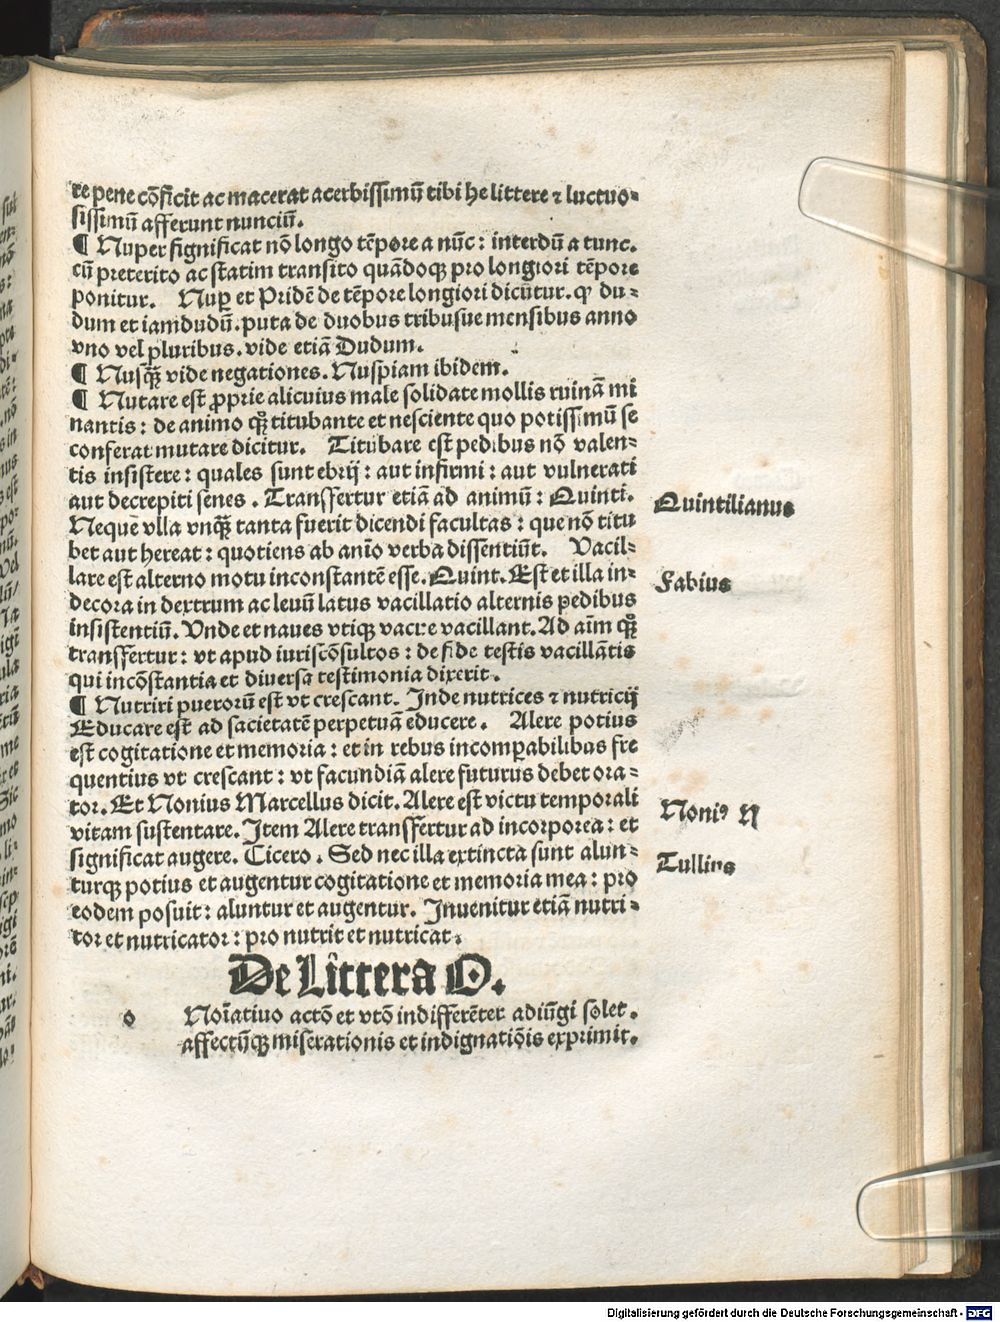 re pene cōficit ac macerat acerbissimū tibi he littere ⁊ luctuo-
sissimū afferunt nunciū.
¶ Nuper significat nō longo tēpore a nūc: interdū a tunc.
cū preterito ac statim transito quādoqꝫ pro longiori tēpore
ponitur. Nuꝑ et Pridē de tēpore longiori dicūtur. ꝙ du-
dum et iamdudū. puta de duobus tribusue mensibus anno
vno vel pluribus. vide etiā Dudum.
¶ Nusꝙ̃ vide negationes. Nuspiam ibidem.
¶ Nutare est ꝓprie alicuius male solidate mollis ruinā mi
nantis: de animo ꝙ̃ titubante et nesciente quo potissimū se
conferat mutare dicitur. Titubare est pedibus nō valen-
tis insistere: quales sunt ebrij: aut infirmi: aut vulnerati
aut decrepiti senes. Transfertur etiā ad animū: Quinti.
Neque vlla vnꝙ̃ tanta fuerit dicendi facultas: que nō titu
bet aut hereat: quotiens ab anīo verba dissentiūt. Vacil-
lare est alterno motu inconstantē esse. Quint. Est et illa in-
decora in dextrum ac leuū latus vacillatio alternis pedibus
insistentiū. Vnde et naues vtiqꝫ vacue vacillant. Ad aīm ꝙ̃
transfertur: vt apud iuriscōsultos: de fide testis vacillātis
qui incōstantia et diuersa testimonia dixerit.
¶ Nutriri puerorū est vt crescant. Inde nutrices ⁊ nutricij
Educare est ad sacietatē perpetuā educere. Alere potius
est cogitatione et memoria: et in rebus incomꝑabilibas fre
quentius vt crescant: vt facundiā alere futurus debet ora-
tor. Et Nonius Marcellus dicit. Alere est victu temporali
vitam sustentare. Item Alere transfertur ad incorporea: et
significat augere. Cicero. Sed nec illa extincta sunt alun-
turqꝫ potius et augentur cogitatione et memoria mea: pro
eodem posuit: aluntur et augentur. Inuenitur etiā nutri-
tor et nutricator: pro nutrit et nutricat.
Quintilianus
Fabius
Noniꝰ M
Tullius
De Littera O.
o Noīatiuo actō et vtō indifferēter adiūgi solet.
affectūqꝫ miserationis et indignatiōis exprimit.
Digitalisierung gefördert durch die Deutsche Forschungsgemeinschaft - DFG